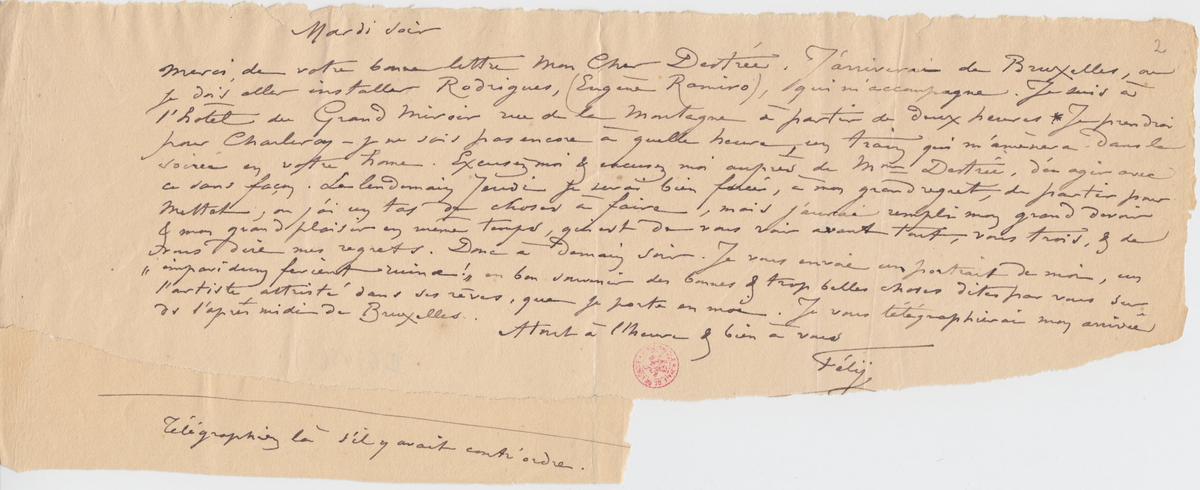 Mardi soir
2
Merci, de votre bonne lettre Mon Cher Destrée. J'arriverai de Bruxelles, où
je dois aller installer Rodrigues, (Eugène Ramiro), qui m'accompagne. Je suis à
l'hôtel du Grand Miroir rue de la Montagne à partir de deux heures * Je prendrai
pour Charleroy – je ne sais pas encore à quelle heure, un train qui m'amènera dans la
soirée en votre home. Excusez moi & excusez moi auprès de Mme Destrée, d'en agir avec
ce sans façon. Le lendemain Jeudi je serai bien forcé, à mon grand regret, de partir pour
Mettet, où j'ai un tas de choses à faire, mais j'aurai rempli mon grand devoir
& mon grand plaisir en même temps, qui est de vous voir avant tout, vous trois, & de
vous dire mes regrets. Donc à demain soir. Je vous envoie un portrait de moi, un
"impavidum ferient ruinæ!" en bon souvenir des bonnes & trop belles choses dites par vous sur
l'artiste attristé dans ses rêves, que je porte en moi. Je vous télégraphierai mon arrivée
ds l'après midi de Bruxelles.
A tout à l'heure & bien à vous
Féliy
Télégraphiez là s'il y avait contr'ordre.